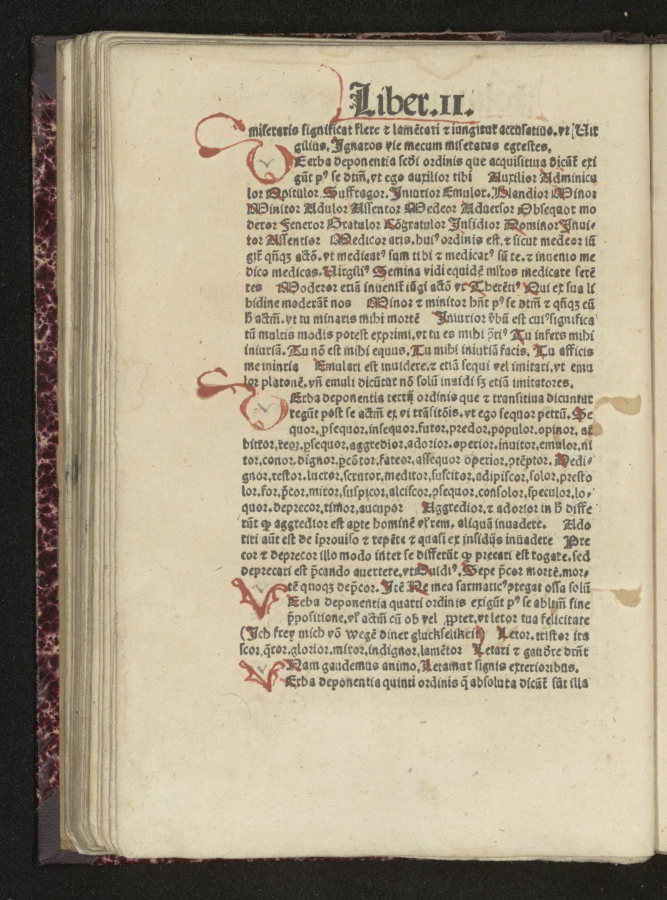 Liber.II.
miseraris significat flere ⁊ lamētari ⁊ iungitur accusatiuo.vt Uir
gilius. Ignaros vie mecum miseratus egrestes.
Uerba deponentia scđi ordinis que acquisitiua dicūt̄ exi
gūt pꝰ se dtm̄, vt ego auxilior tibi Auxilior Adminicu
lor Opitulor. Suffragor. Iniurior Emulor. Blandior Minor
Minitor Adulor Assentor Medeor Aduersor Obsequor mo
deror Feneror Gratulor Cōgratulor Insidior Dominor Inui⸗
tor Assentior Medicor aris. huiꝰ ordinis est, ⁊ sicut medeor iū
git̄ qn̄qꝫ actō. vt medicatꝰ sum tibi ⁊ medicatꝰ sū te. ⁊ inuenio me
dico medicas. Uirgiliꝰ Semina vidi equidē ml̄tos medicate serē
tes Moderor etiā inuenit̄ iūgi actō vt Therētiꝰ Qui ex sua li
bidine moderāt̄ nos Minor ⁊ minitor hn̄t pꝰ se dtm̄ ⁊ qn̄qꝫ cū
h̄ actm̄. vt tu minaris mihi mortē Iniurior v̄bū est cuiꝰsignifica
tū multis modis potest exprimi, vt tu es mihi Tu infers mihi
iniuriā. Tu nō est mihi equus. Tu mihi iniuriā facis. Tu afficis
me iniuria Emulari est inuidere. ⁊ etiā sequi vel imitari. vt emu
lor platonē. vn̄ emuli dicūtur nō solū inuidi sꝫ etiā imitatores.
Uerba deponentia tertij ordinis que ⁊ transitiua dicuntur
regūt post se actm̄ ex vi trāsitōis. vt ego sequor petrū. Se
quor. ꝓsequor. insequor. furor. predor. populor. opinor. ar
bitror. reor. ꝓsequor. aggredior. adorior. operior. inuitor. emulor. ni
tor. conor. dignor. ꝑcōtor. fateor. assequor operior. Dedi⸗
gnor. testor. lucror. scrutor. meditor. suscitor. adipiscor. solor. presto
lor. for. p̄cor. miror. suspicor. alciscor. ꝓsequor. consolor. speculor. lo⸗
quor. deprecor. rimor. aucupor Aggredior. ⁊ adorior in h̄ diffe
rūt ꝙ aggredior est apte hominē vl̓ rem. aliquā inuadere. Ado
riri aūt est de īprouiso ⁊ repēte ⁊ quasi ex insidijs inuadere Pre
cor ⁊ deprecor illo modo inter se differūt ꝙ precari est rogate. sed
deprecari est p̄cando auertere. vt Ouidiꝰ. Sepe p̄cor mortē. mor⸗
tē quoqꝫ dep̄cor. Itē Ne mea sarmaticꝰ ꝓtegat ossa solū
Uerba deponentia quarti ordinis exigūt pꝰ se abltm̄ sine
p̄positione. vl̓ actm̄ cū ob vel ꝓpter. vt letor tua felicitate
(Ich frey mich vō wegē diner gluckselikeit) Letor. tristor ira
scor. q̄ror. glorior. miror. indignor. lamētor Letari ⁊ gaudre dr̄nt
Nam gaudemus animo. Letamur signis exterioribus.
Uerba deponentia quinti ordinis q̄ absoluta dicūt̄ sūt illa